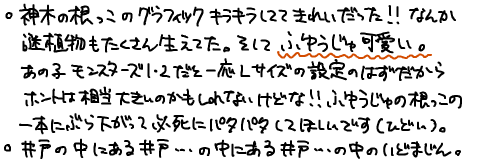 。神木の根っこのグラフィックキラキラしててきれいだった!!なんか
謎植物もたくさん生えてた。そして ふゆうじゅ可愛い。
あの子モンスターズ1・2だと一応Lサイズの設定のはずだから
ホントは相当大きいのかもしれないけどな!!ふゆうじゅの根っこの
一本にぶら下がって必死にパタパタしてほしいです(ひどい)。
。井戸の中にある井戸…の中にある井戸…の中のいどまじん。